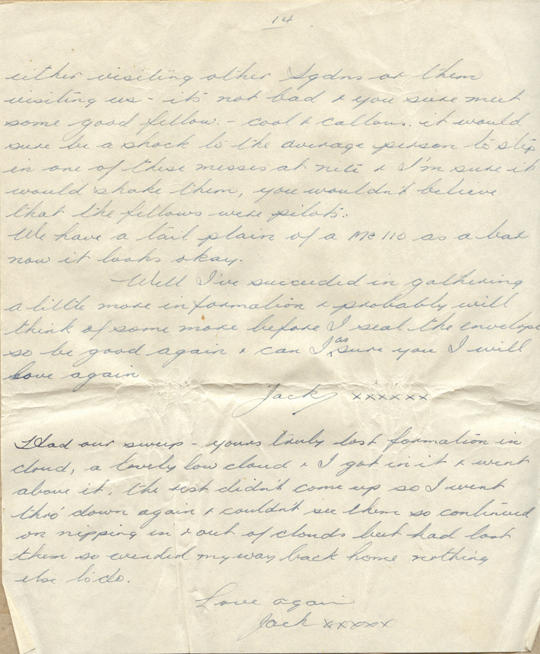 14
either visiting other Sqdns or them
visiting us - it's not bad & you sure meet
some good fellows - cool & callous. it would
sure be a shock to the average person to step
in one of these messes at nite & I'm sure it
would shake them, you wouldn't believe
that the fellows were pilots.
We have a tail plain of a Me 110 as a bar
now it looks okay.
Well I've succeeded in gathering
a little more information & probably will
think of some more before I seal the envelope
so be good again & can I as sure you I will
Love again
Jack xxxxxx
Had our sweep - yours truly lost formation in
cloud, a lovely low cloud & I got in it & went
above it, the rest didn't come up so I went
thro' down again & couldn't see them so continued
on nipping in & out of clouds but had lost
them so wended my way back home nothing
else to do.
Love again
Jack xxxxx